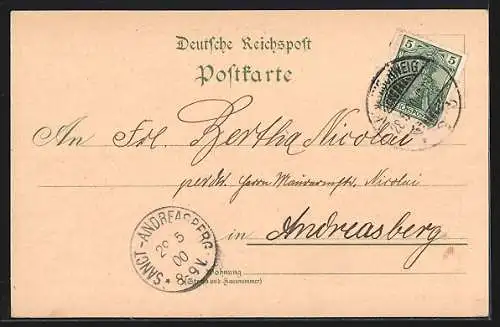 Deutsche Reichspost
Postkarte
5 5
An Frl. Bertha Nicolai
Herrn Nicolai
in Andreasberg
SANCT-ANDREASBERG
29 5
00
8-9V.
Wohnung
(Straße und Hausnummer)